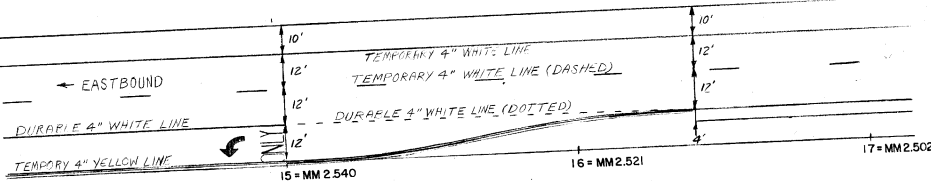 10'
10'
TEMPORARY 4" WHITE LINE
12'
12'
← EASTBOUND
TEMPORARY 4" WHITE LINE (DASHED)
12'
12'
DURABLE 4" WHITE LINE
DURABLE 4" WHITE LINE (DOTTED)
ONLY
12'
4'
TEMPORY 4" YELLOW LINE
15 = MM 2.540
16 = MM 2.521
17 = MM 2.502